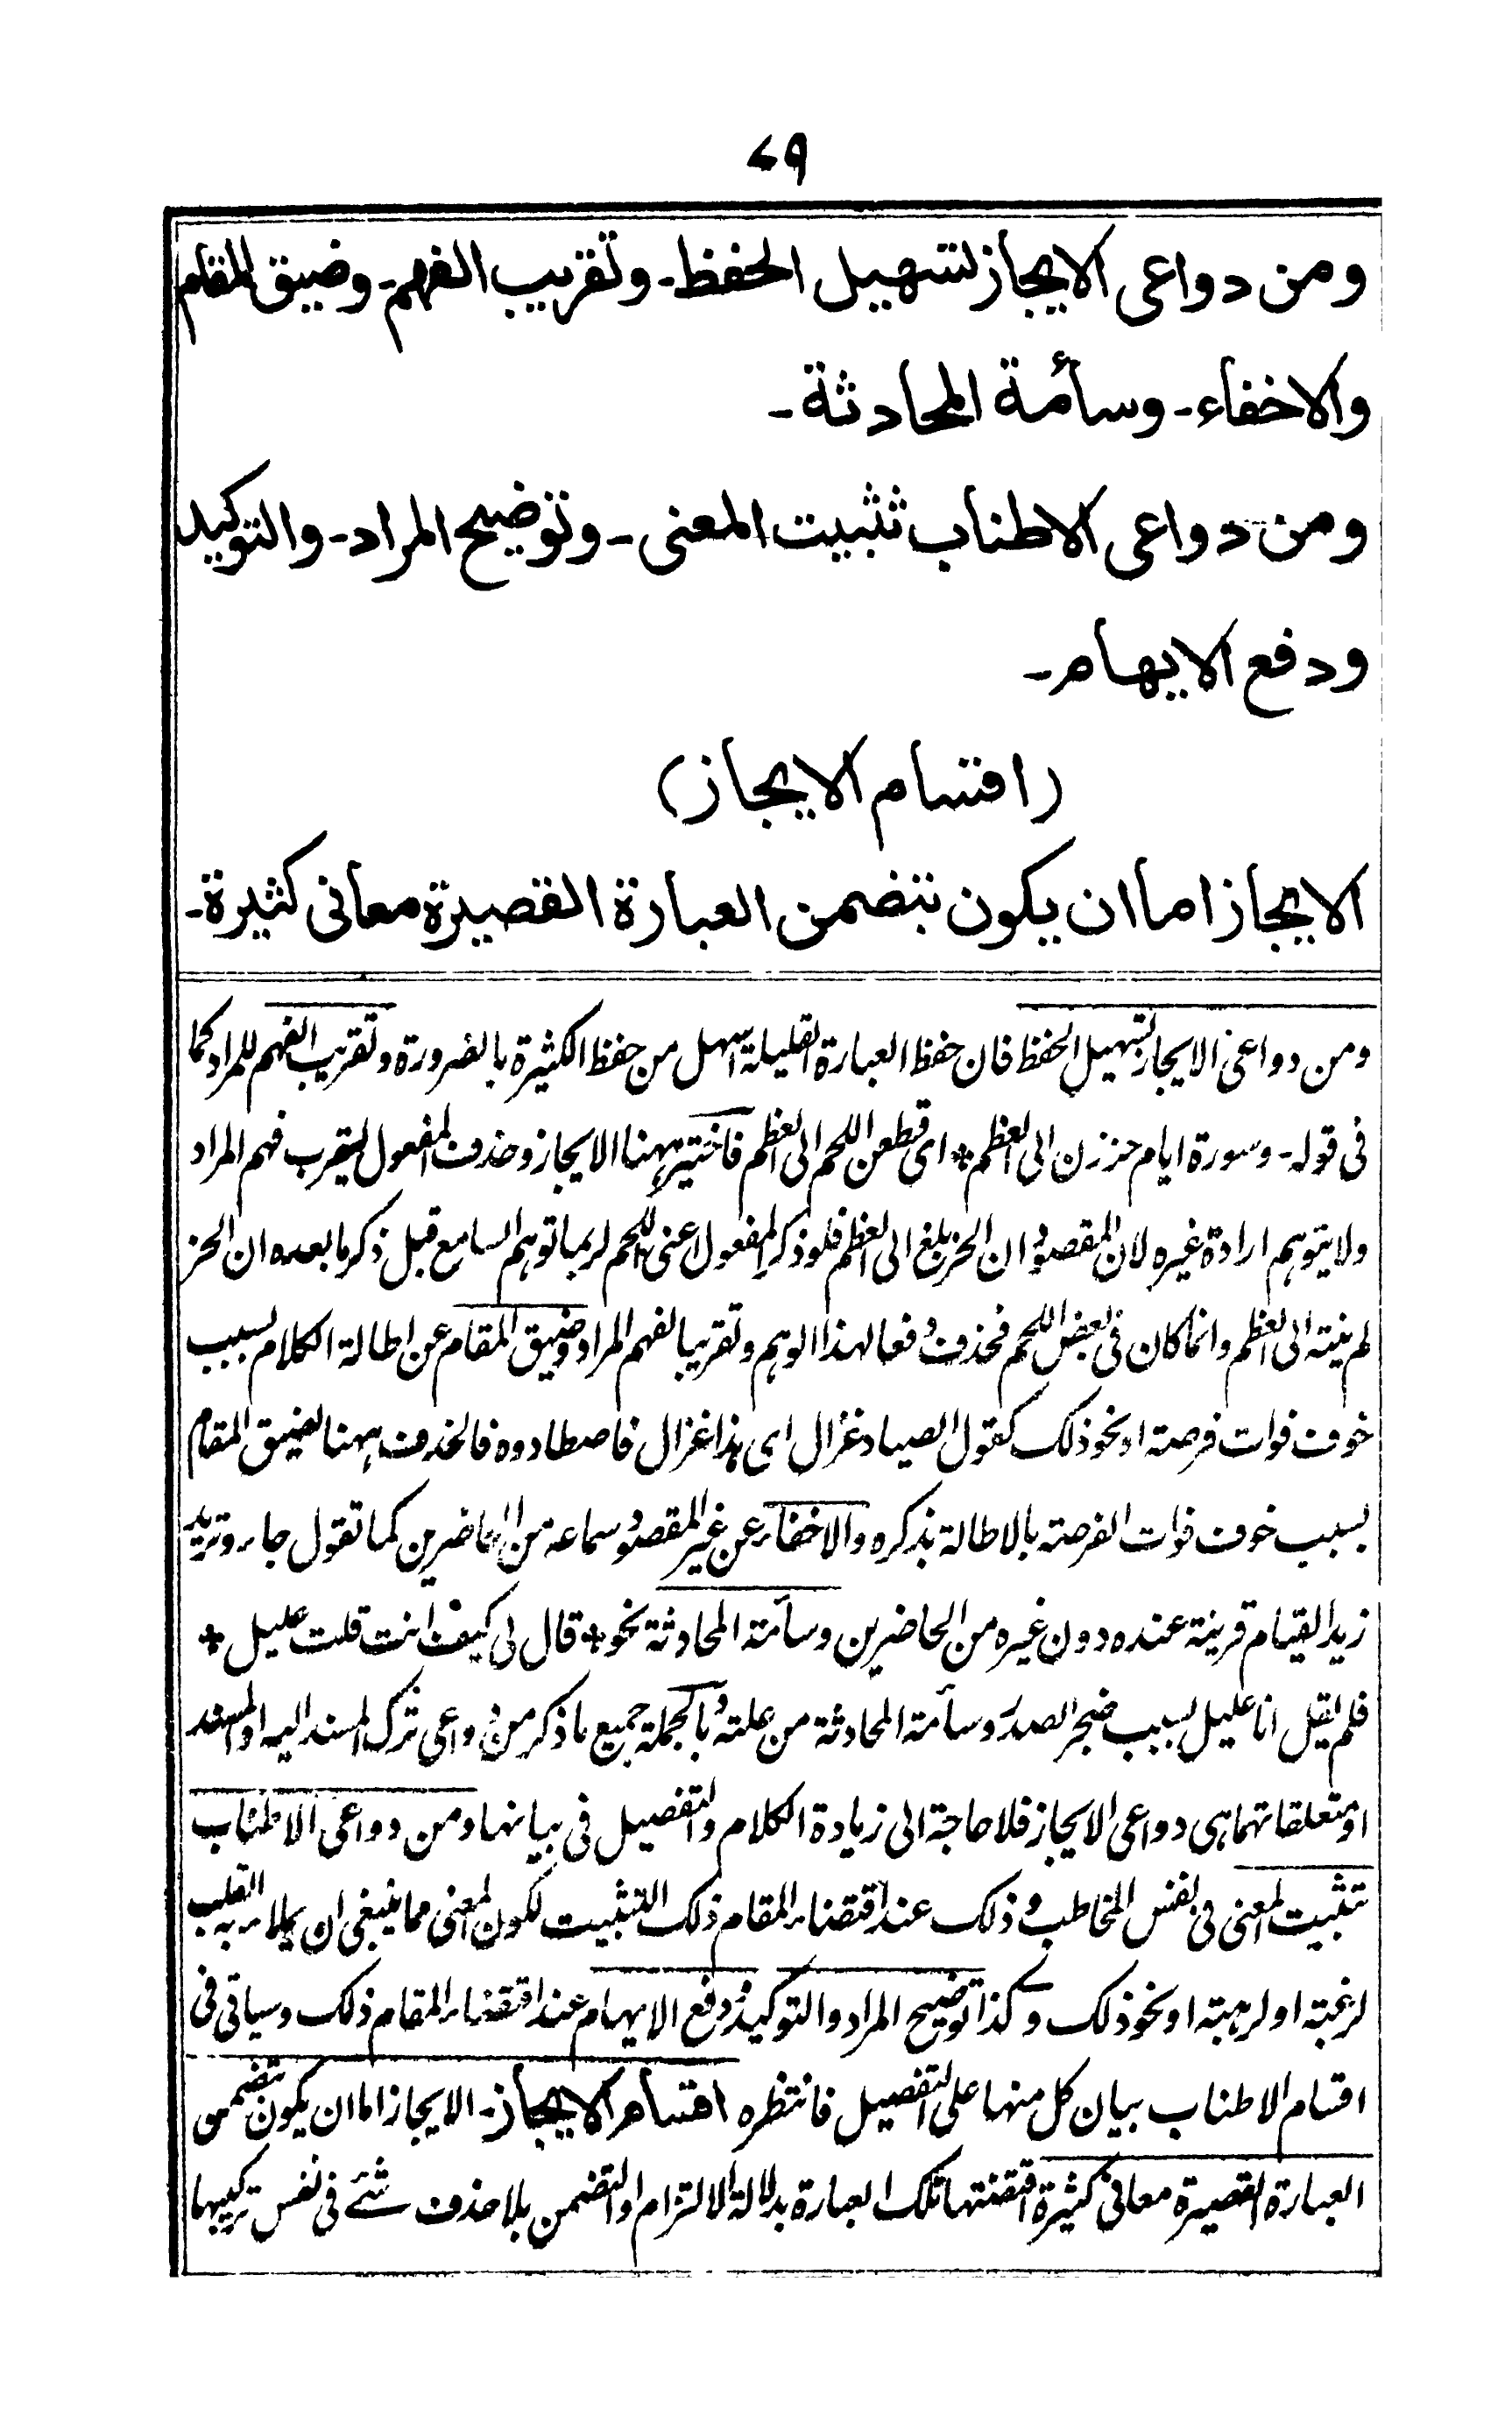 ۷۹
ومن دواعی الایجاز تسهیل الحفظ۔ وتقریب الفهم۔ وضیق المقام
والاخفاء۔ وسأمة المحادثة۔
ومن دواعی الاطناب تثبیت المعنی۔ وتوضیح المراد۔ والتوکید
ودفع الایهام۔
(اقسام الایجاز)
الایجاز اما ان یکون بتضمن العبارة القصیرة معانی کثیرة۔
ومن دواعی الایجاز تسهیل الحفظ فان حفظ العبارة القلیلة اسهل من حفظ الکثیرة بالضرورة وتقریب الفهم للمراد کما
فی قوله۔ وسورة ایام حززن الی العظم * ای قطعن اللحم الی العظم فاختیر ههنا الایجاز وحذف المفعول لیقرب فهم المراد
ولا یتوهم ارادة غیره لان المقصود ان الحز بلغ الی العظم فلو ذکر المفعول اعنی اللحم لربما توهم السامع قبل ذکر ما بعده ان الحز
لم ینته الی العظم وانما کان فی بعض اللحم فحذف دفعا لهذا الوهم وتقریبا لفهم المراد وضیق المقام عن اطالة الکلام بسبب
خوف فوات فرصة او نحو ذلک کقول الصیاد غزال ای هذا غزال فاصطادوه فالحذف ههنا لضیق المقام
بسبب خوف فوات الفرصة بالاطالة بذکره والاخفاء عن غیر المقصود سماعه من الحاضرین کما تقول جاء وترید
زید القیام قرینة عنده دون غیره من الحاضرین وسأمة المحادثة نحو * قال لی کیف انت قلت علیل *
فلم یقل انا علیل بسبب ضجر الصدر وسأمة المحادثة من علته وبالجملة جمیع ما ذکر من دواعی ترک المسند الیه او المسند
او متعلقاتهما هی دواعی الایجاز فلا حاجة الی زیادة الکلام والتفصیل فی بیانها ومن دواعی الاطناب
تثبیت المعنی فی نفس المخاطب وذلک عند اقتضاء المقام ذلک التثبیت لکون المعنی مما ینبغی ان یملاء به القلب
لرغبة او لرهبة او نحو ذلک وکذا توضیح المراد والتوکید ودفع الایهام عند اقتضاء المقام ذلک وسیاتی فی
اقسام الاطناب بیان کل منها علی التفصیل فانتظره اقسام الایجاز۔ الایجاز اما ان یکون بتضمن
العبارة القصیرة معانی کثیرة اقتضتها تلک العبارة بدلالة الالتزام او التضمن بلا حذف شئ فی نفس ترکیبها